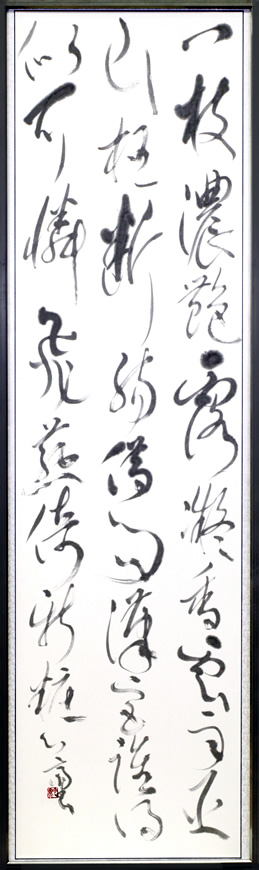 一枝濃艷露凝香雲雨巫
山枉斷腸借問漢宮誰得
似可憐飛燕倚新粧